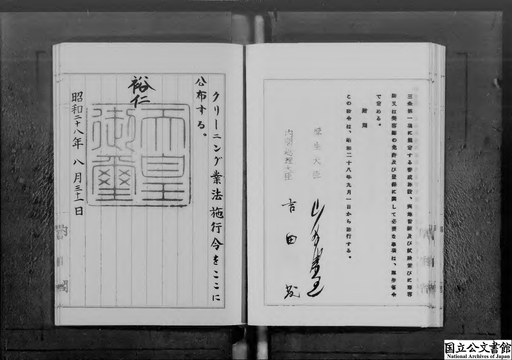 三条第一項に規定する養成施設、
で定める。
附則
この政令は、昭和二十八年九月一日から施行する。
厚生大臣
内閣総理大臣 吉田茂
クリーニング業法施行令をここに
公布する。
裕仁
天皇御璽
昭和二十八年八月三十一日
国立公文書館
National Archives of Japan